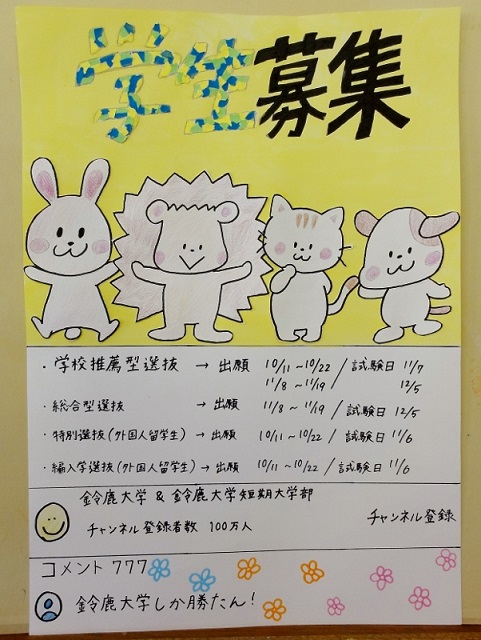 学生募集
・学校推薦型選抜 → 出願 10/11～10/22 / 試験日 11/7
11/8～11/19 / 12/5
・総合型選抜 → 出願 11/8～11/19 / 試験日 12/5
・特別選抜(外国人留学生) → 出願 10/11～10/22 / 試験日 11/6
・編入学選抜(外国人留学生) → 出願 10/11～10/22 / 試験日 11/6
鈴鹿大学 & 鈴鹿大学短期大学部
チャンネル登録者数 100万人 チャンネル登録
コメント 777
鈴鹿大学しか勝たん!